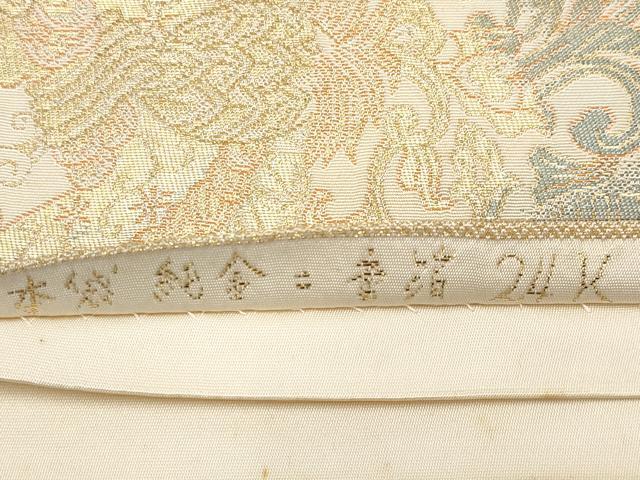 本袋 純金二重箔 24K